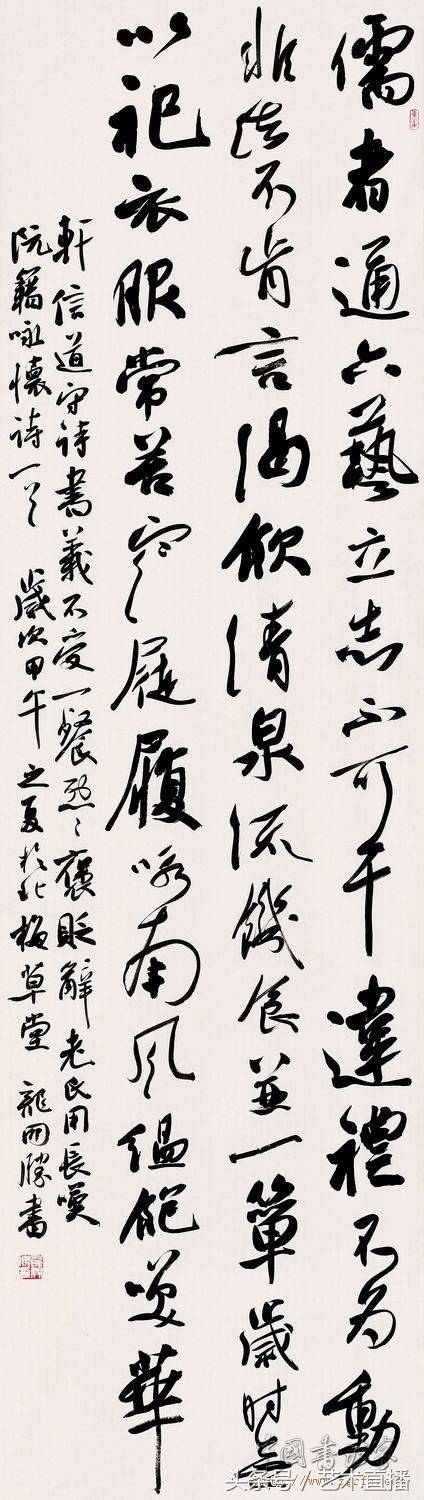 儒者通六藝立志不可干違禮不為動
非法不肯言渴飲清泉流饑食並一簞歲時无
以祀衣服常苦寒屣履咏南风縕袍笑華
軒信道守詩書義不受一餐烈〻褒貶辭老氏用長嘆
阮籍咏懷詩一首 歲次甲午之夏於北梅草堂 龍開勝書
头条号/艺术直播